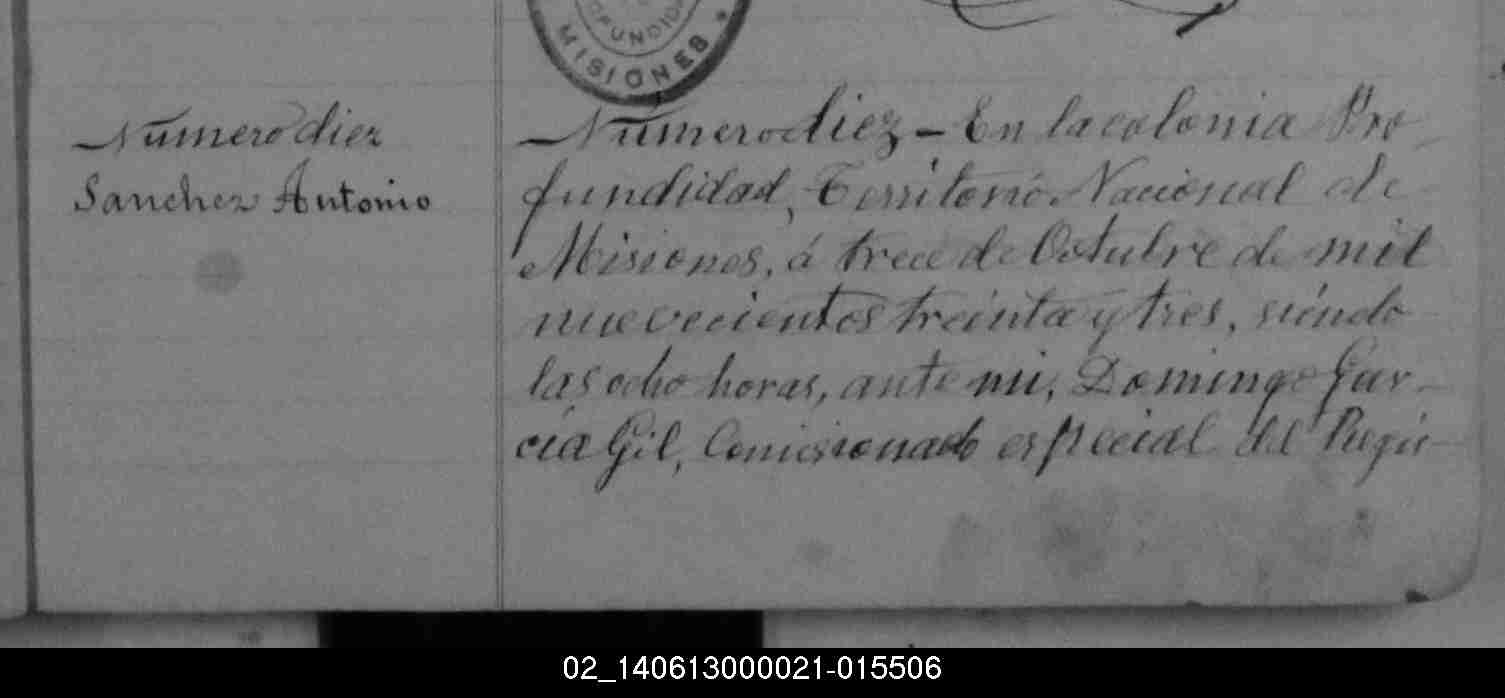 OFUNDIDA
MISIONES *
Número diez
Sanchez Antonio
Número diez – En la colonia Pro
fundidad, Territorio Nacional de
Misiones, á trece de Octubre de mil
nuevecientos treinta y tres, siéndo
las ocho horas, ante mi, Domingo Gar-
cía Gil, Comisionado especial del Regis-
02_140613000021-015506